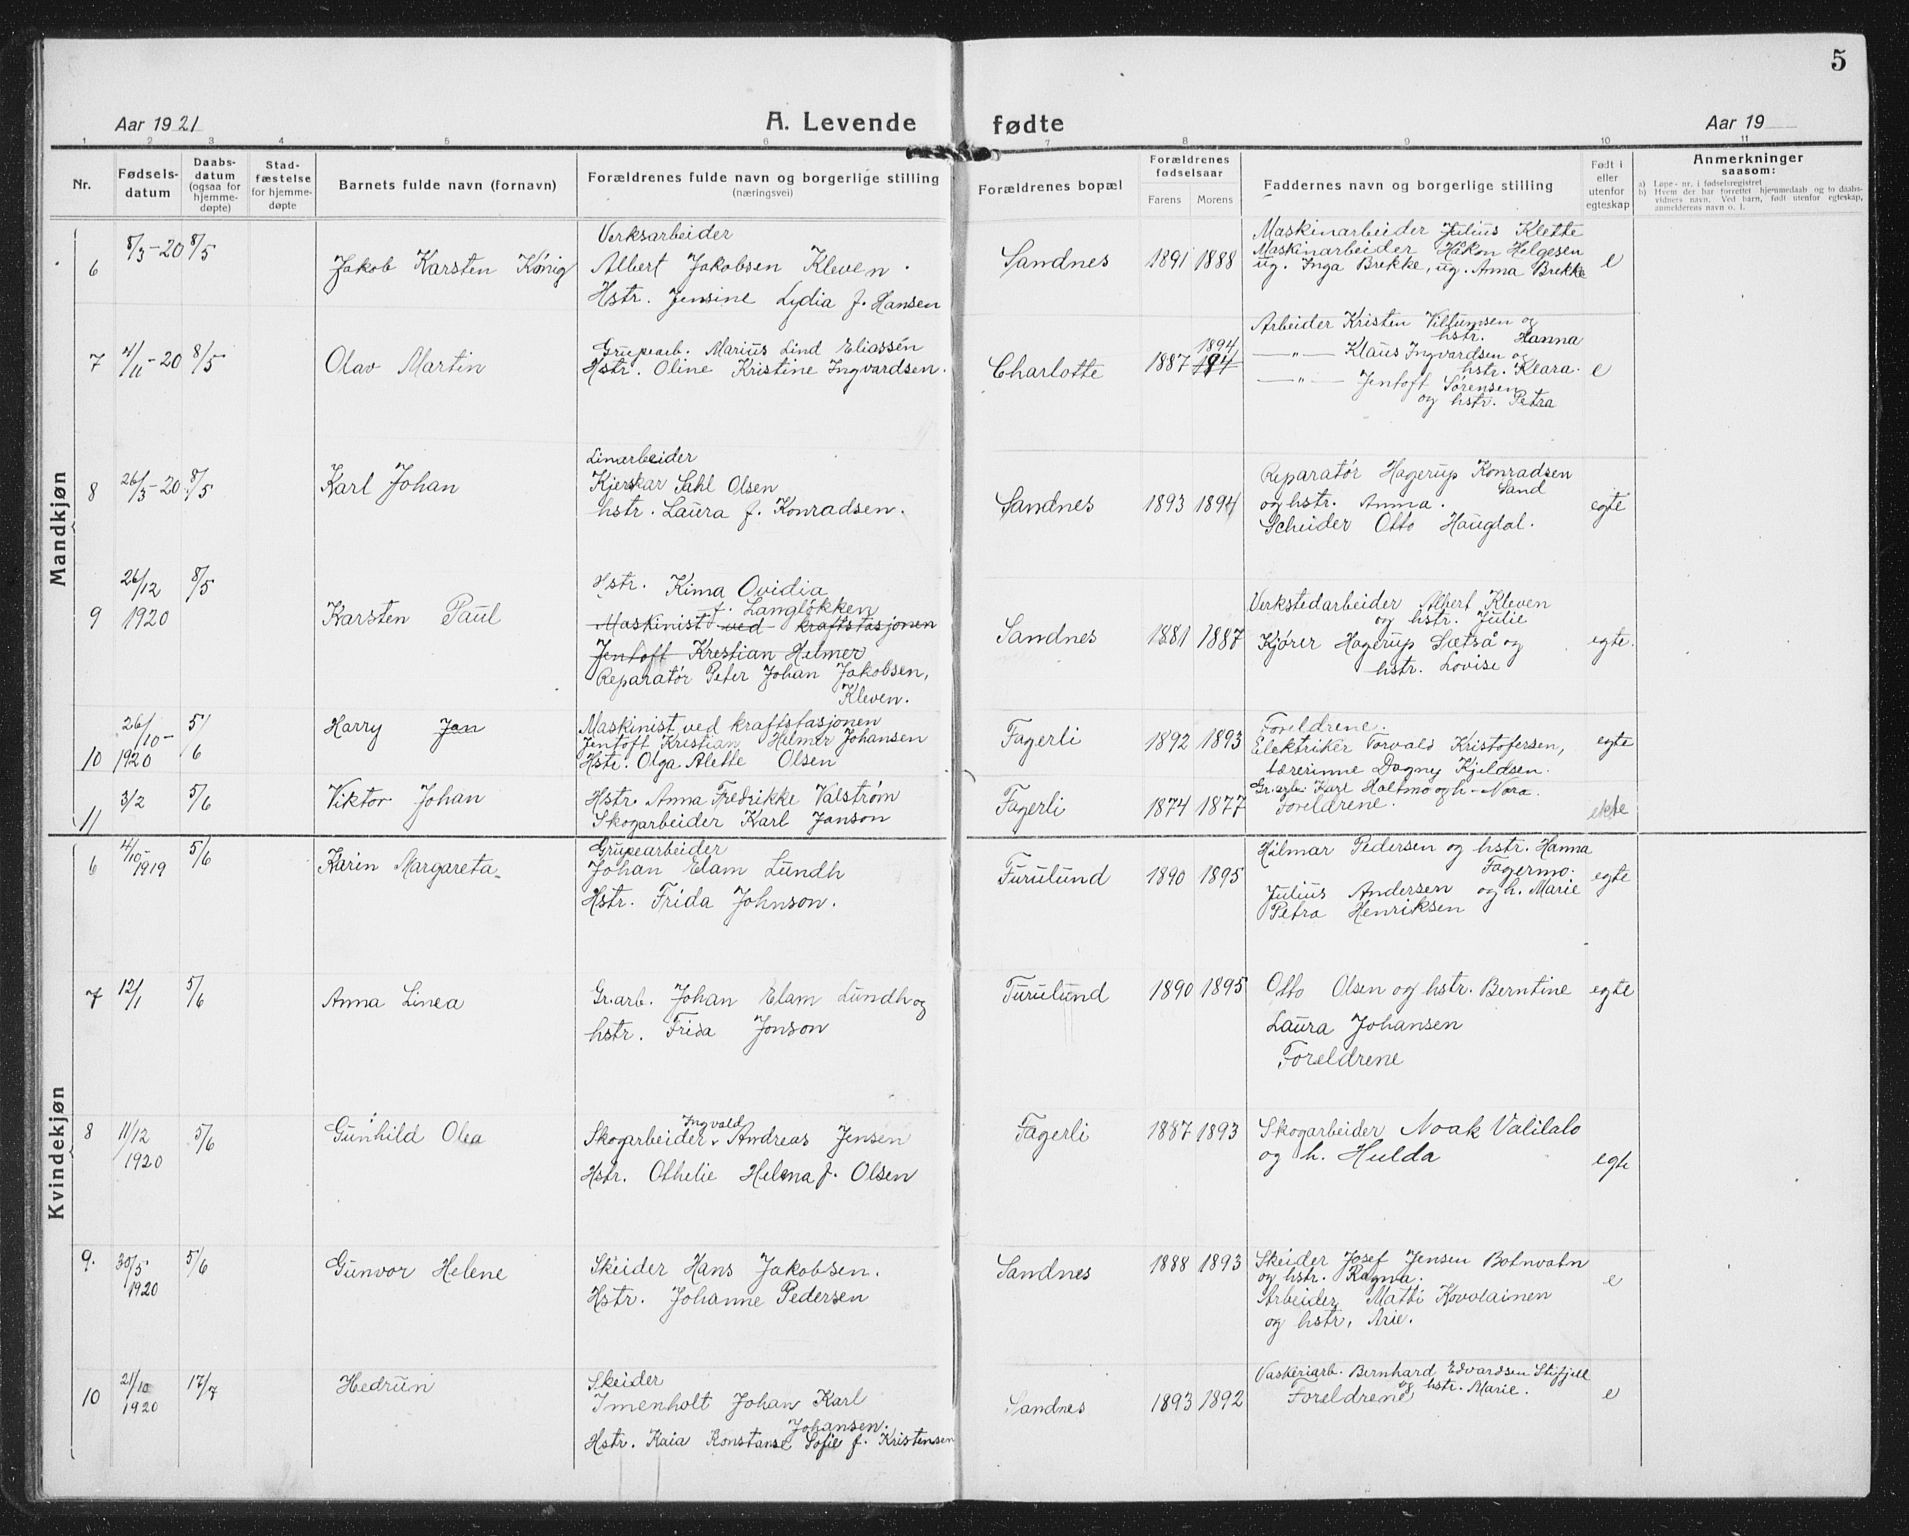 5
Aar 1921
A. Levende fødte
Aar 19
1 2 3 4 5 6 7 8 9 10 11
Nr.
Fødsels-
datum
Daabs-
datum
(ogsaa for
hjemme-
døpte)
Stad-
fæstelse
for hjemme-
døpte
Barnets fulde navn (fornavn)
Forældrenes fulde navn og borgerlige stilling
(næringsvei)
Forældrenes bopæl
Forældrenes
fødselsaar
Farens Morens
Faddernes navn og borgerlige stilling
Født i
eller
utenfor
egteskap
Anmerkninger
saasom:
a) Løpe-nr. i fødselsregistret
b) Hvem der har forrettet hjemmedaab og to daabs-
vidners navn. Ved barn, født utenfor egteskap,
anmelderens navn o. l.
Mandkjøn
6 8/3-20 8/5
Jakob Karsten Kønig
Verksarbeider
Albert Jakobsen Kleven.
Hstr. Jensine Lydia f. Hansen
Sandnes 1891 1888
Maskinarbeider Julius Klette
Maskinarbeider Håkon Helgesen
ug. Inga Brekke, ug. Anna Brekke
e
7 4/11-20 8/5
Olav Martin
Grupearb. Marius Lind Eliassén
Hstr. Oline Kristine Ingvardsen.
Charlotte 1887 1894
Arbeider Kristen Viltumsen og
hstr. Hanna
—"— Klaus Ingvardsen og
hstr. Klara.
—"— Jentoft Sørensen
og hstr. Petra
e
8 26/3-20 8/5
Karl Johan
Linarbeider
Kjerskar Sahl Olsen
hstr. Laura f. Konradsen.
Sandnes 1893 1894
Reparatør Hagerup Konradsen
Sand
og hstr. Anna.
Scheider Otto Haugdal.
egte
9 26/12 1920 8/5
Karsten Paul
Hstr. Kima Ovidia
f. Langløkken
Maskinist ved kraftstasjonen
Jentoft Krestian Helmer
Reparatør Peter Johan Jakobsen,
Kleven.
Sandnes 1881 1887
Verkstedarbeider Albert Kleven
og hstr. Julie
Kjører Hagerup Sætså og
hstr. Lovise
egte.
10 26/10-1920 5/6
Harry Jan
Maskinist ved kraftstasjonen
Jentoft Kristian Helmer Johansen
Hstr. Olga Alette Olsen
Fagerli 1892 1893
Foreldrene.
Elektriker Torvald Kristofersen,
lærerinne Dagny Kjeldsen.
egte
11 3/2 5/6
Viktor Johan
Hstr. Anna Fredrikke Valstrøm
Skogarbeider Karl Janson
Fagerli 1874 1877
Gr.arb. Karl Holtmo og h. Nora.
Foreldrene.
ekte
Kvindekjøn
6 4/10-1919 5/6
Karin Margareta
Grupearbeider
Johan Elam Lundh
Hstr. Frida Johnson.
Furulund 1890 1895
Hilmar Pedersen og hstr. Hanna
Fagermo.
Julius Andersen og h. Marie
Petra Henriksen
egte
7 12/1 5/6
Anna Linea
Gr.arb. Johan Elam Lundh og
hstr. Frida Jonson
Furulund 1890 1895
Otto Olsen og hstr. Berntine
Laura Johansen
Foreldrene
egte
8 11/12 1920 5/6
Gunhild Olea
Ingvald
Skogarbeider Andreas Jensen
Hstr. Othelie Helena f. Olsen
Fagerli 1887 1893
Skogarbeider Noak Valilalo
og h. Hulda
egte
9. 30/5 1920 5/6
Gunvor Helene
Skeider Hans Jakobsen.
Hstr. Johanne Pedersen
Sandnes 1888 1893
Skeider Josef Jensen Botnvatn
og hstr. Ragna.
Arbeider Matti Kovalainen
og hstr. Arie.
e
10 21/10 1920 17/7
Hedrun
Skeider
Imenholt Johan Karl
Johansen.
Hstr. Kaia Konstanse Sofie f. Kristensen
Sandnes 1893 1892
Vaskeriarb. Bernhard Edvardsen Stifjell
og hstr. Marie.
Foreldrene
e